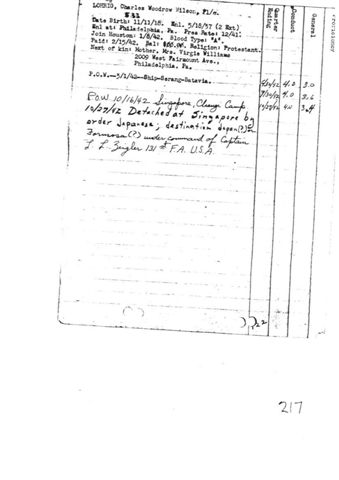 LOHRIG, Charles Woodrow Wilson, F1/c.
Date Birth: 11/11/18. Enl. 5/18/37 (2 Ext)
Enl at: Philadelphia, Pa. Pres Rate: 12/41.
Join Houston: 1/8/42. Blood Type: "A".
Paid: 2/15/42. Bal: Religion: Protestant.
Next of kin: Mother, Mrs. Virgie Williams
2009 West Fairmount Ave.,
Philadelphia, Pa.
P.O.W.--3/1/42--Ship-Serang-Batavia.
POW 10/16/42 Singapore, Change Camp
10/27/42 Detached at Singapore by
order Japanese; destination Japan(?) or
Formosa(?) under command of Captain
L L. Zeigler 131st F.A. U.S.A.
Quarter Ending
Conduct
General
4.0 3.0
4.0 3.6
4.0 3.4
22
217